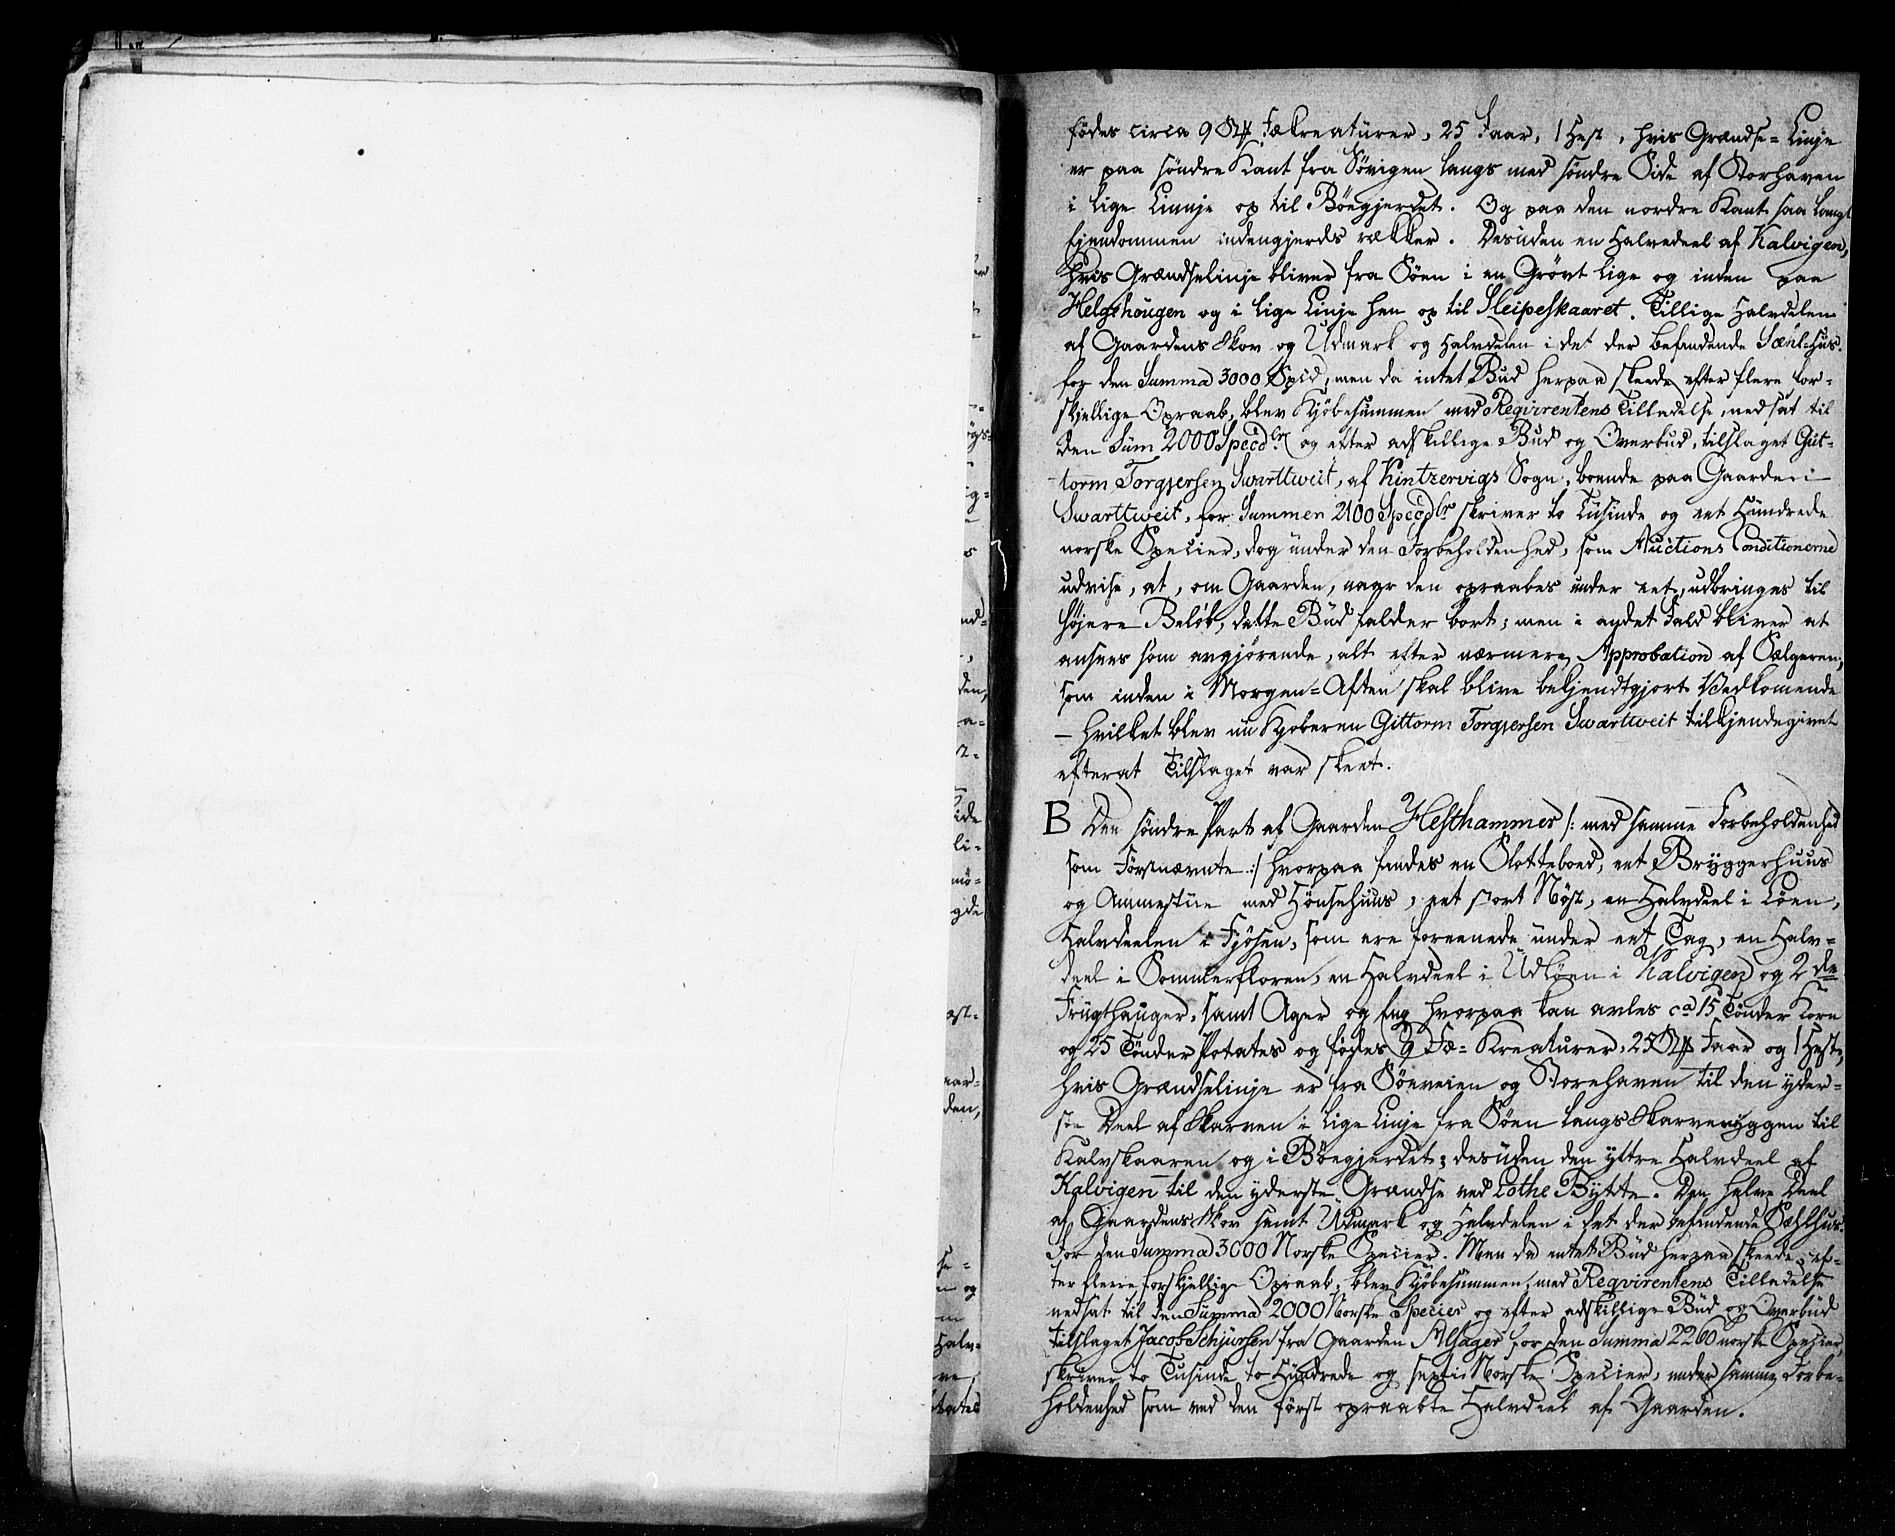 fødes circa 9 Stk Fækreaturer, 25 Faar, 1 Hest, hvis Grændse=Linje
er paa søndre Kant fra Søvigen langs med søndre Side af Storhaven
i lige Linnje op til Bøegjerdet. Og paa den nordre Kant saa langt
Ejendommen indengjerds rækker. Desuden en Halvedeel af Kalvigen,
hvis Grændselinje bliver fra Søen i en Grøvt lige og inden paa
Helgehougen og i lige Linje hen op til Sleipeskaaret. Tillige Halvdelen
af Gaardens Skov og Udmark og Halvdelen i det der befindende Sæhl=Hus.
for den Summa 3000 Spid, men da intet Bud herpaa skeede efter flere for-
skjellige Opraab, blev Kjøbesummen med Reqvirentens Tilladelse, nedsat til
den Sum 2000 Specdlr og efter adskillige Bud og Overbud, tilslaget Git-
torm Torgjersen Swarttweit, af Kintzervigs Sogn, boende paa Gaarden
Swarttweit, for Summen 2100 Specdlr skriver to Tusinde og eet Hundrede
norske Specier, dog under den Forbeholdenhed, som Auctions Conditionerne
udvise, at, om Gaarden, naar den opraabes under eet, udbringes til
højere Beløb, dette Bud falder bort; men i andet Fald bliver at
ansees som avgjørende, alt efter nærmere Approbation af Sælgeren,
som inden i Morgen=Aften skal blive bekjendtgjort Vedkomende
— hvilket blev nu Kjøberen Gittorm Torgjersen Swarttweit tilkjendegivet
efterat Tilslaget var skeet.
B Den søndre Part af Gaarden Hesthammer /: med samme Forbeholdenhed
som Førstnævnte :/ hvorpaa findes en Slotteboed, eet Bryggerhuus
og Ammestue med Hønsehuus, eet stort Nøst, en Halvdeel i Løen,
Halvdeelen i Fjøsen, som ere foreenede under eet Tag, en Halv-
deel i Sommerfloren, en Halvdeel i Udløen i Kalvigen og 2 de
Frugthauger, samt Ager og Eng hvorpaa kan avles ca 15 Tønder Korn
og 25 Tønder Potates og fødes 9 Fæ=Kreaturer, 25 Stk Faar og 1 Hest,
hvis Grændselinje er fra Søeveien og Storehaven til den yder-
ste Deel af Skarven i lige Linje fra Søen langs Skarveryggen til
Kalvskaaren og i Bøegjerdet; desuden den yttre Halvdeel af
Kalvigen til den yderste Grændse ved Lothe Bytte. Den halve Deel
af Gaardens Skov samt Udmark og Halvdelen i det der befindende Sæhlhus.
For den Summa 3000 Norske Specier. Men da intet Bud herpaa skeede, ef-
ter flere forskjellige Opraab, blev Kjøbesummen, med Reqvirentens Tilladelse
nedsat til den Summa 2000 Norske Species og efter adskillige Bud og Overbud
tilslaget Jacob Schjursen fra Gaarden Alsager for den Summa 2260 norske Specier,
skriver to Tusinde to Hundrede og sexti Norske Specier, under samme Forbe-
holdenhed som ved den først opraabte Halvdeel af Gaarden.